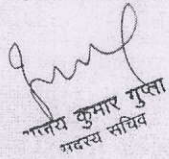 कुमार गुप्ता
सदस्य सचिव